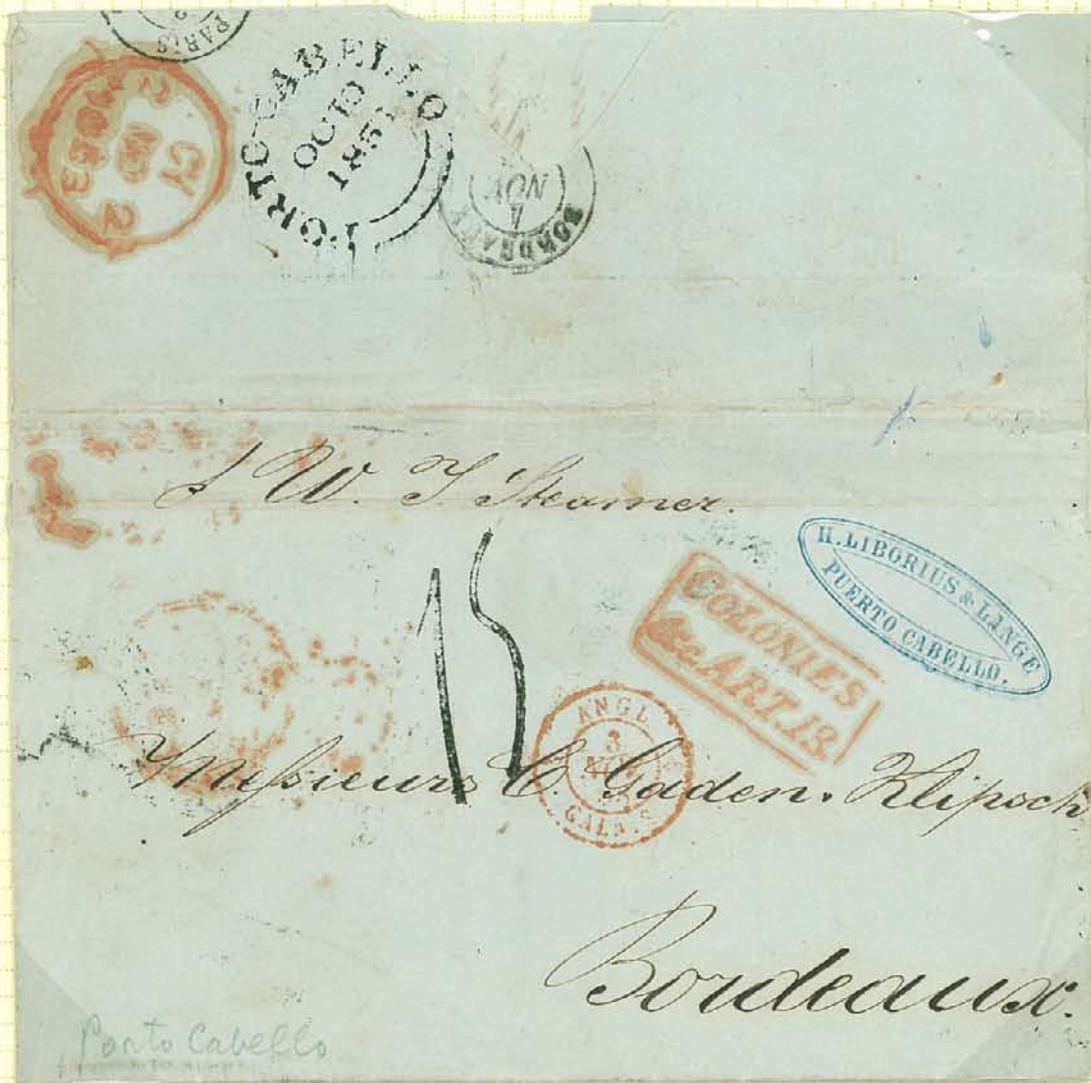 PARIS
CY
2 NO 2
1853
PORTO-CABELLO
OC10
185
BORDEAUX
4
NOV
W. I Steamer.
15
H. LIBORIUS & LANGE
PUERTO CABELLO.
COLONIES
&c. ART. 13.
ANGL
3
CALAIS
Messieurs C. Gaden. Klipsch
Bordeaux.
Porto Cabello